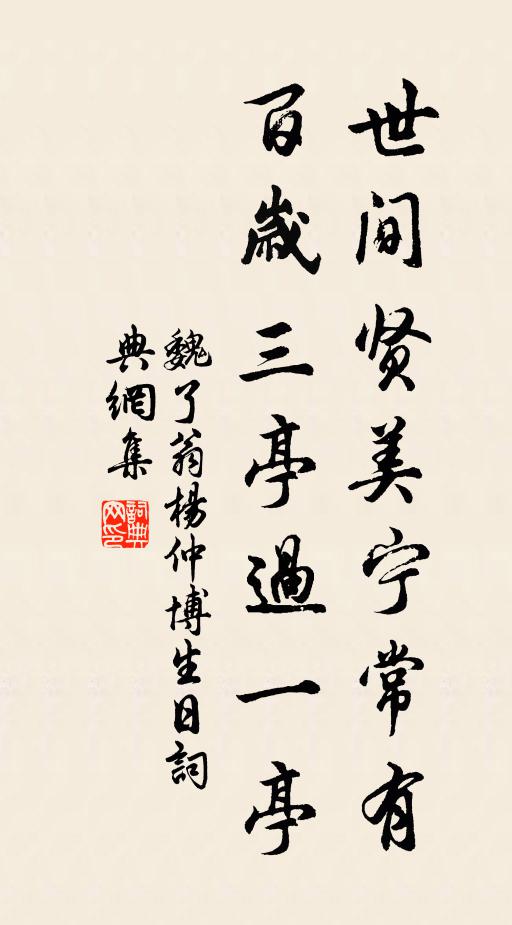 世间贤美宁常有
百歲三亭過一亭
魏了翁楊仲博生日詞
典網集
詞典网印